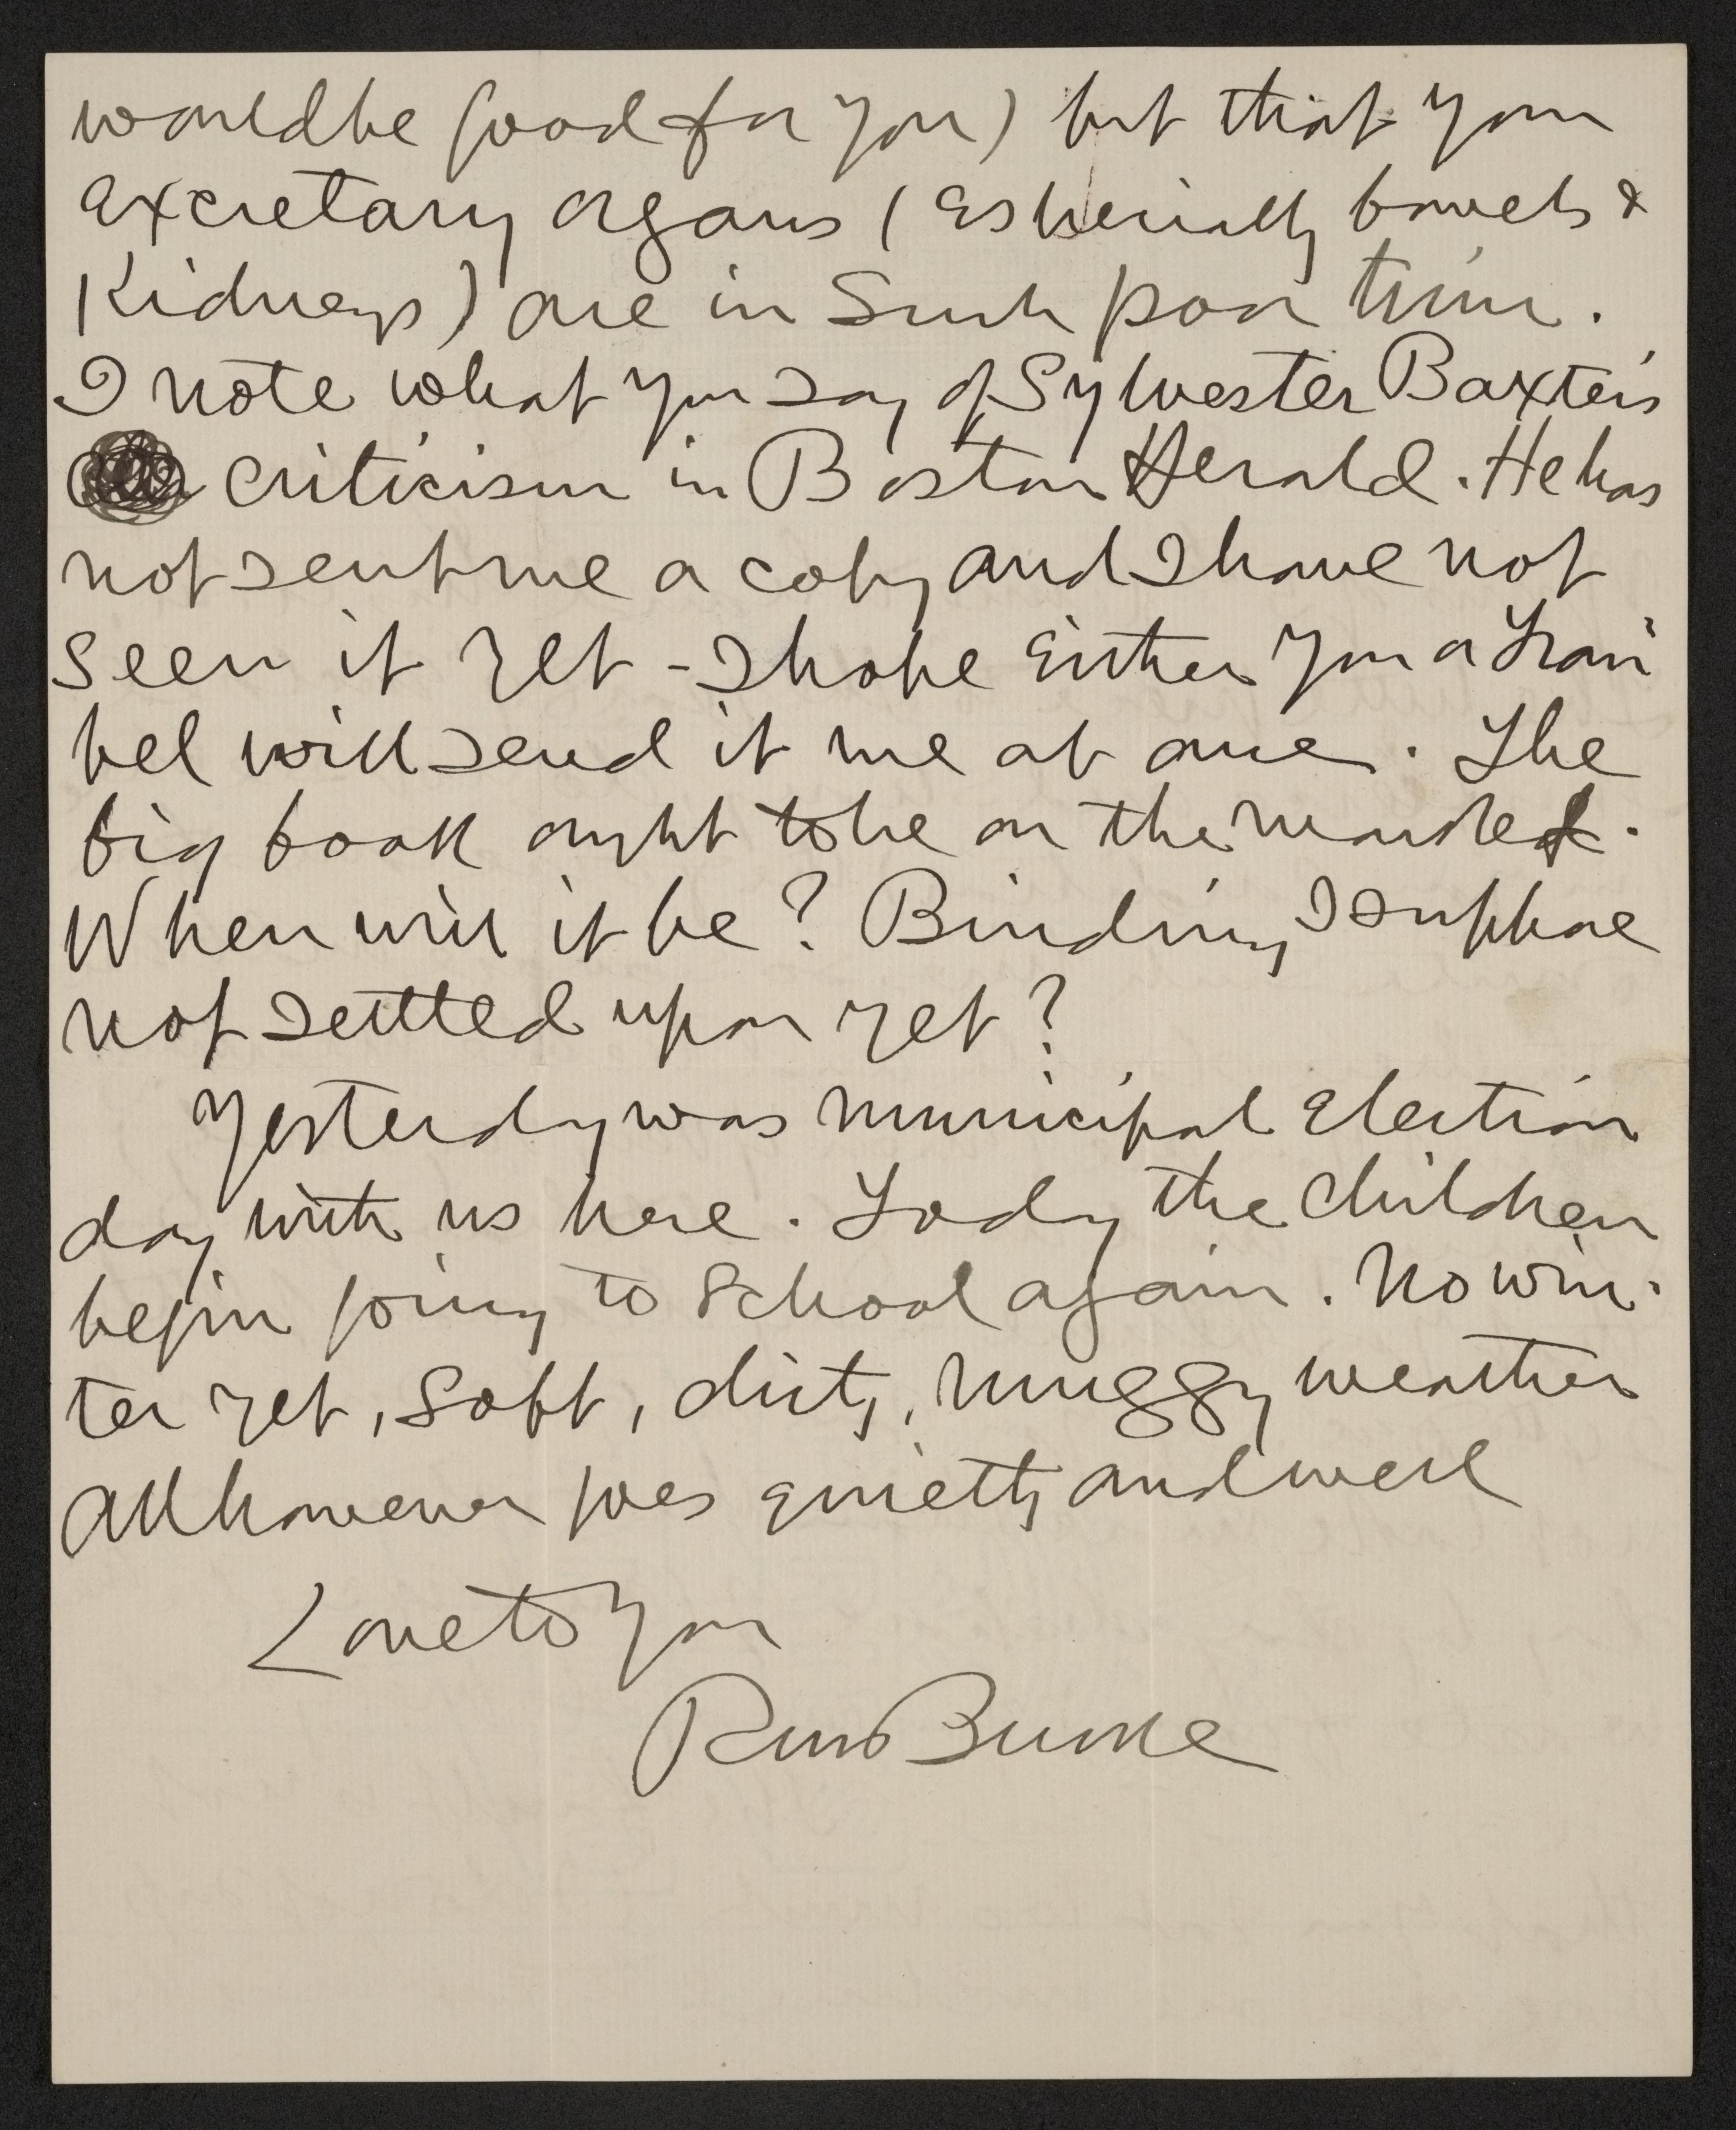 would be good for you) but that your
excretary organs (especially bowels &
Kidneys) are in such poor trim.
I note what you say of Sylvester Baxter's
criticism in Boston Herald. He has
not sent me a copy and I have not
seen it yet - I hope either you or Trau
bel will send it me at once. The
big book ought to be on the market.
When will it be? Binding I suppose
not settled upon yet?
Yesterday was municipal election
day with us here. Today the children
begin going to School again. No win-
ter yet, soft, dirty, muggy weather
All however goes quietly and well
Love to you
R M Bucke